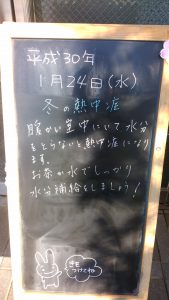 平成30年
1月24日(水)
冬の熱中症
暖かい室中にいて水分
をとらないと熱中症になり
ます。
お茶か水でしっかり
水分補給をしましょう!
きを
つけてね